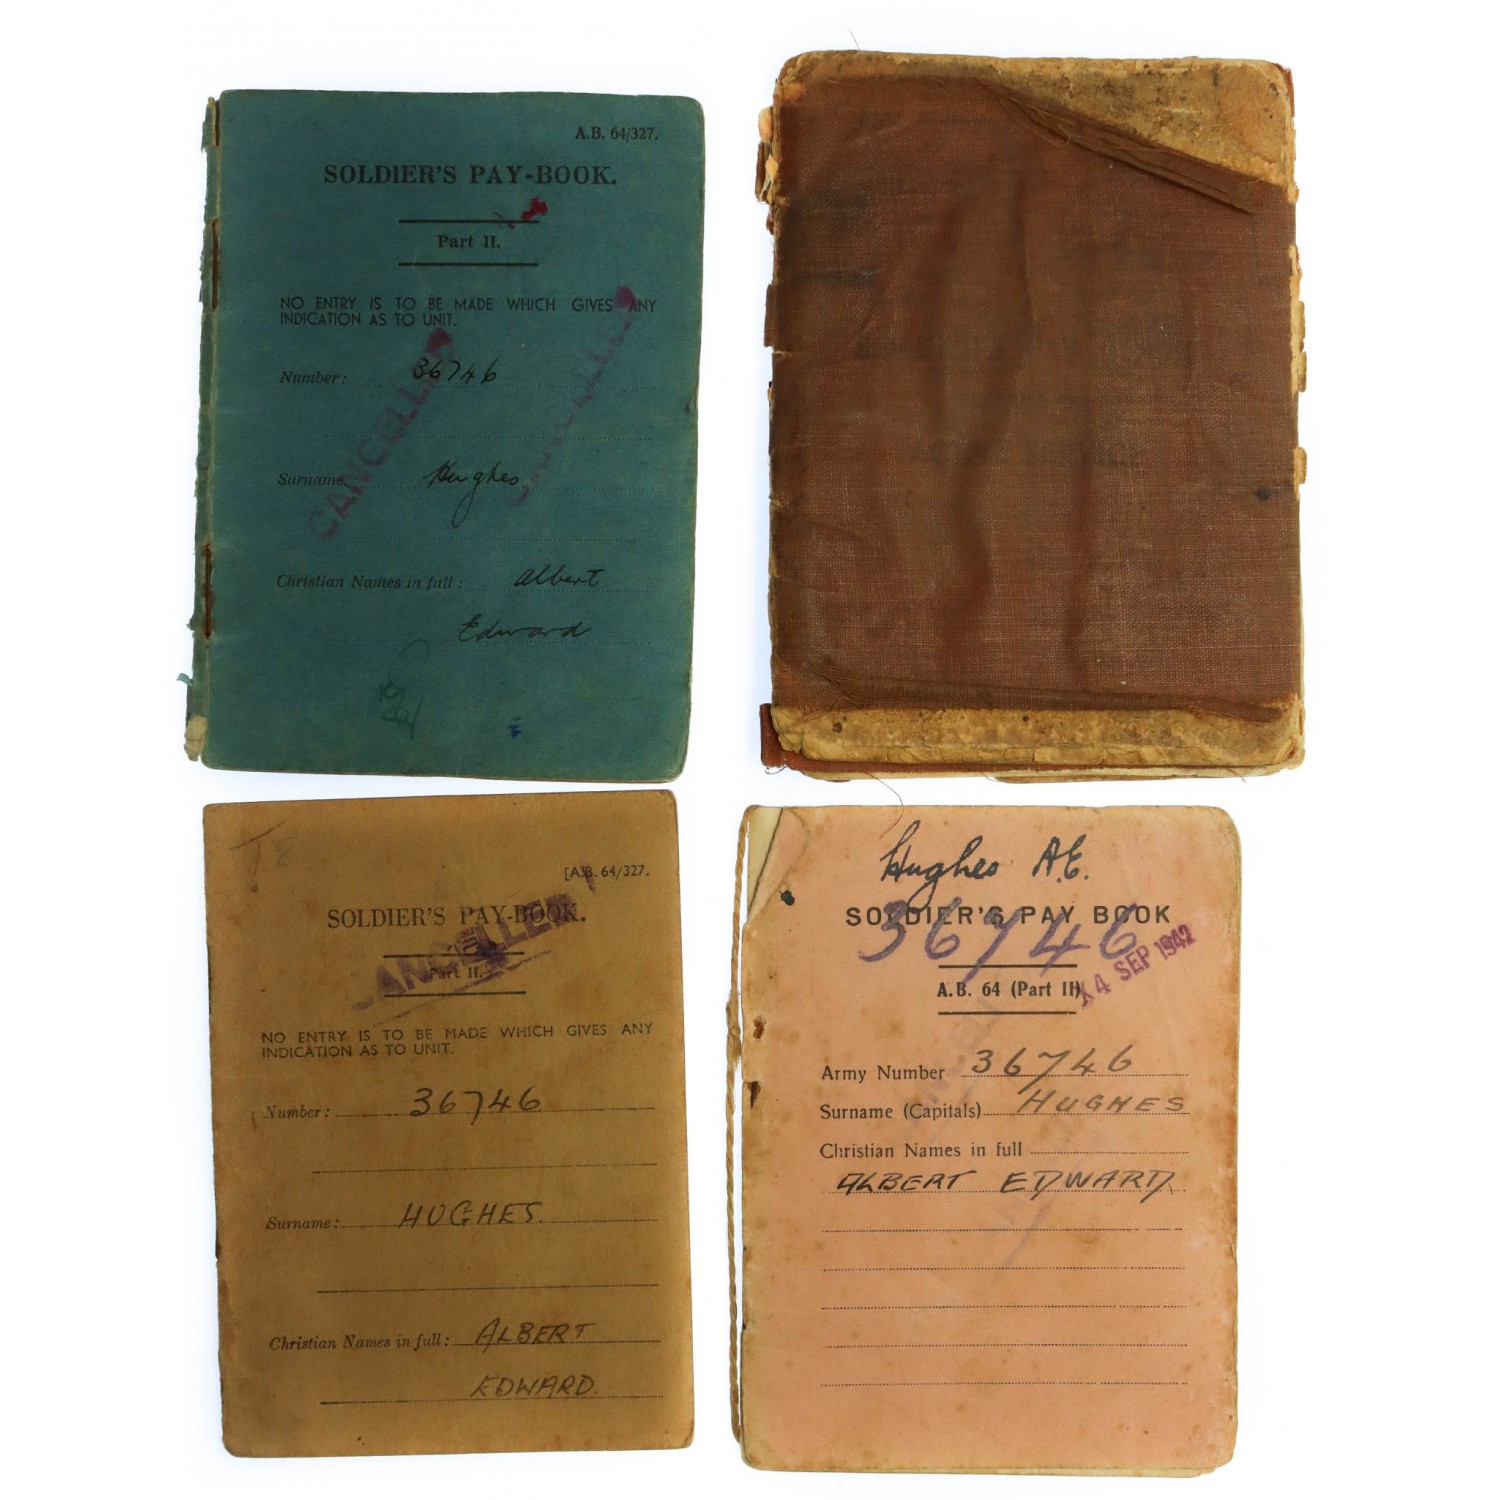 A.B. 64/327.
SOLDIER'S PAY-BOOK.
Part II.
NO ENTRY IS TO BE MADE WHICH GIVES ANY
INDICATION AS TO UNIT.
Number: 36746
Surname Hughes
Christian Names in full: Albert
Edward
CANCELLED
CANCELLED
[A.B. 64/327.
SOLDIER'S PAY-BOOK.
Part II.
CANCELLED
NO ENTRY IS TO BE MADE WHICH GIVES ANY
INDICATION AS TO UNIT.
Number: 36746
Surname: HUGHES.
Christian Names in full: ALBERT
EDWARD.
Hughes A.E.
SOLDIER'S PAY BOOK
36746
A.B. 64 (Part II)
4 SEP 1942
Army Number 36746
Surname (Capitals) HUGHES
Christian Names in full
ALBERT EDWARD